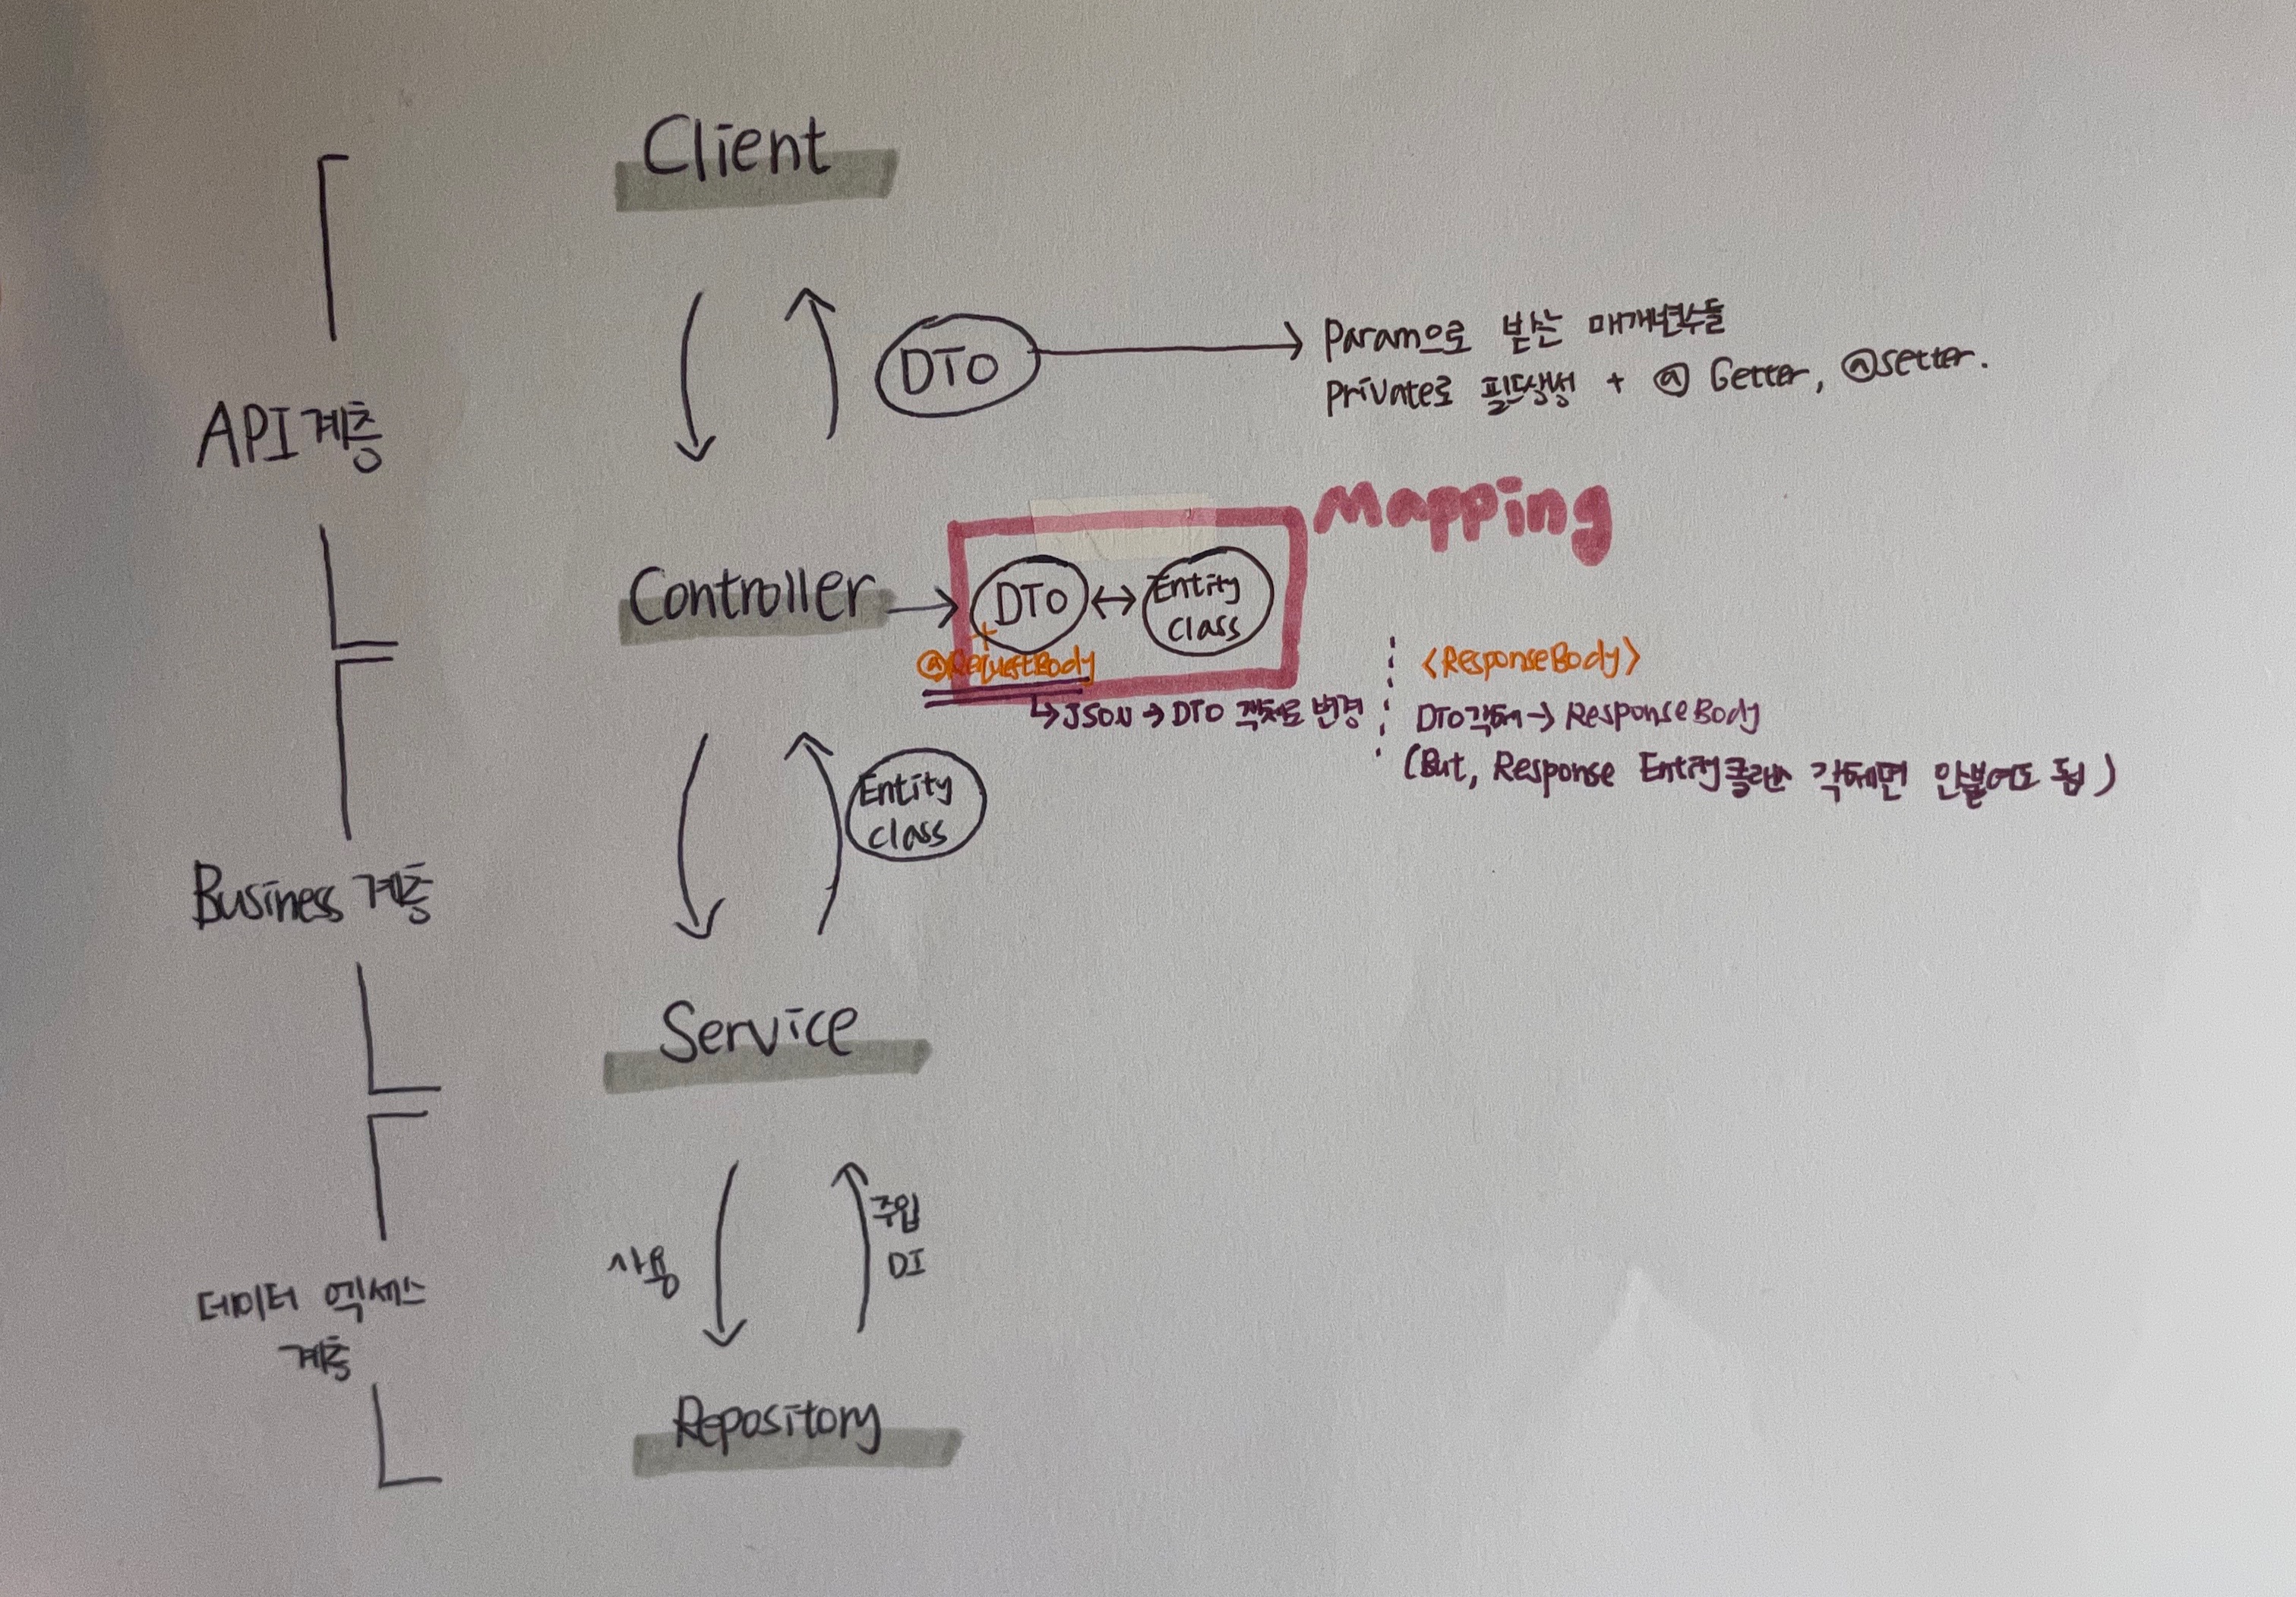 Client
DTO
Param으로 받는 매개변수들
private로 필드생성 + @ Getter, @setter.
API 계층
Mapping
Controller
DTO
Entity
class
+
@RequestBody
JSON → DTO 객체로 변경
<ResponseBody>
DTO객체 → ResponseBody
(But, Response Entity클래스 객체면 안붙여도 됨)
Entity
class
Business 계층
Service
사용
주입
DI
데이터 엑세스
계층
Repository